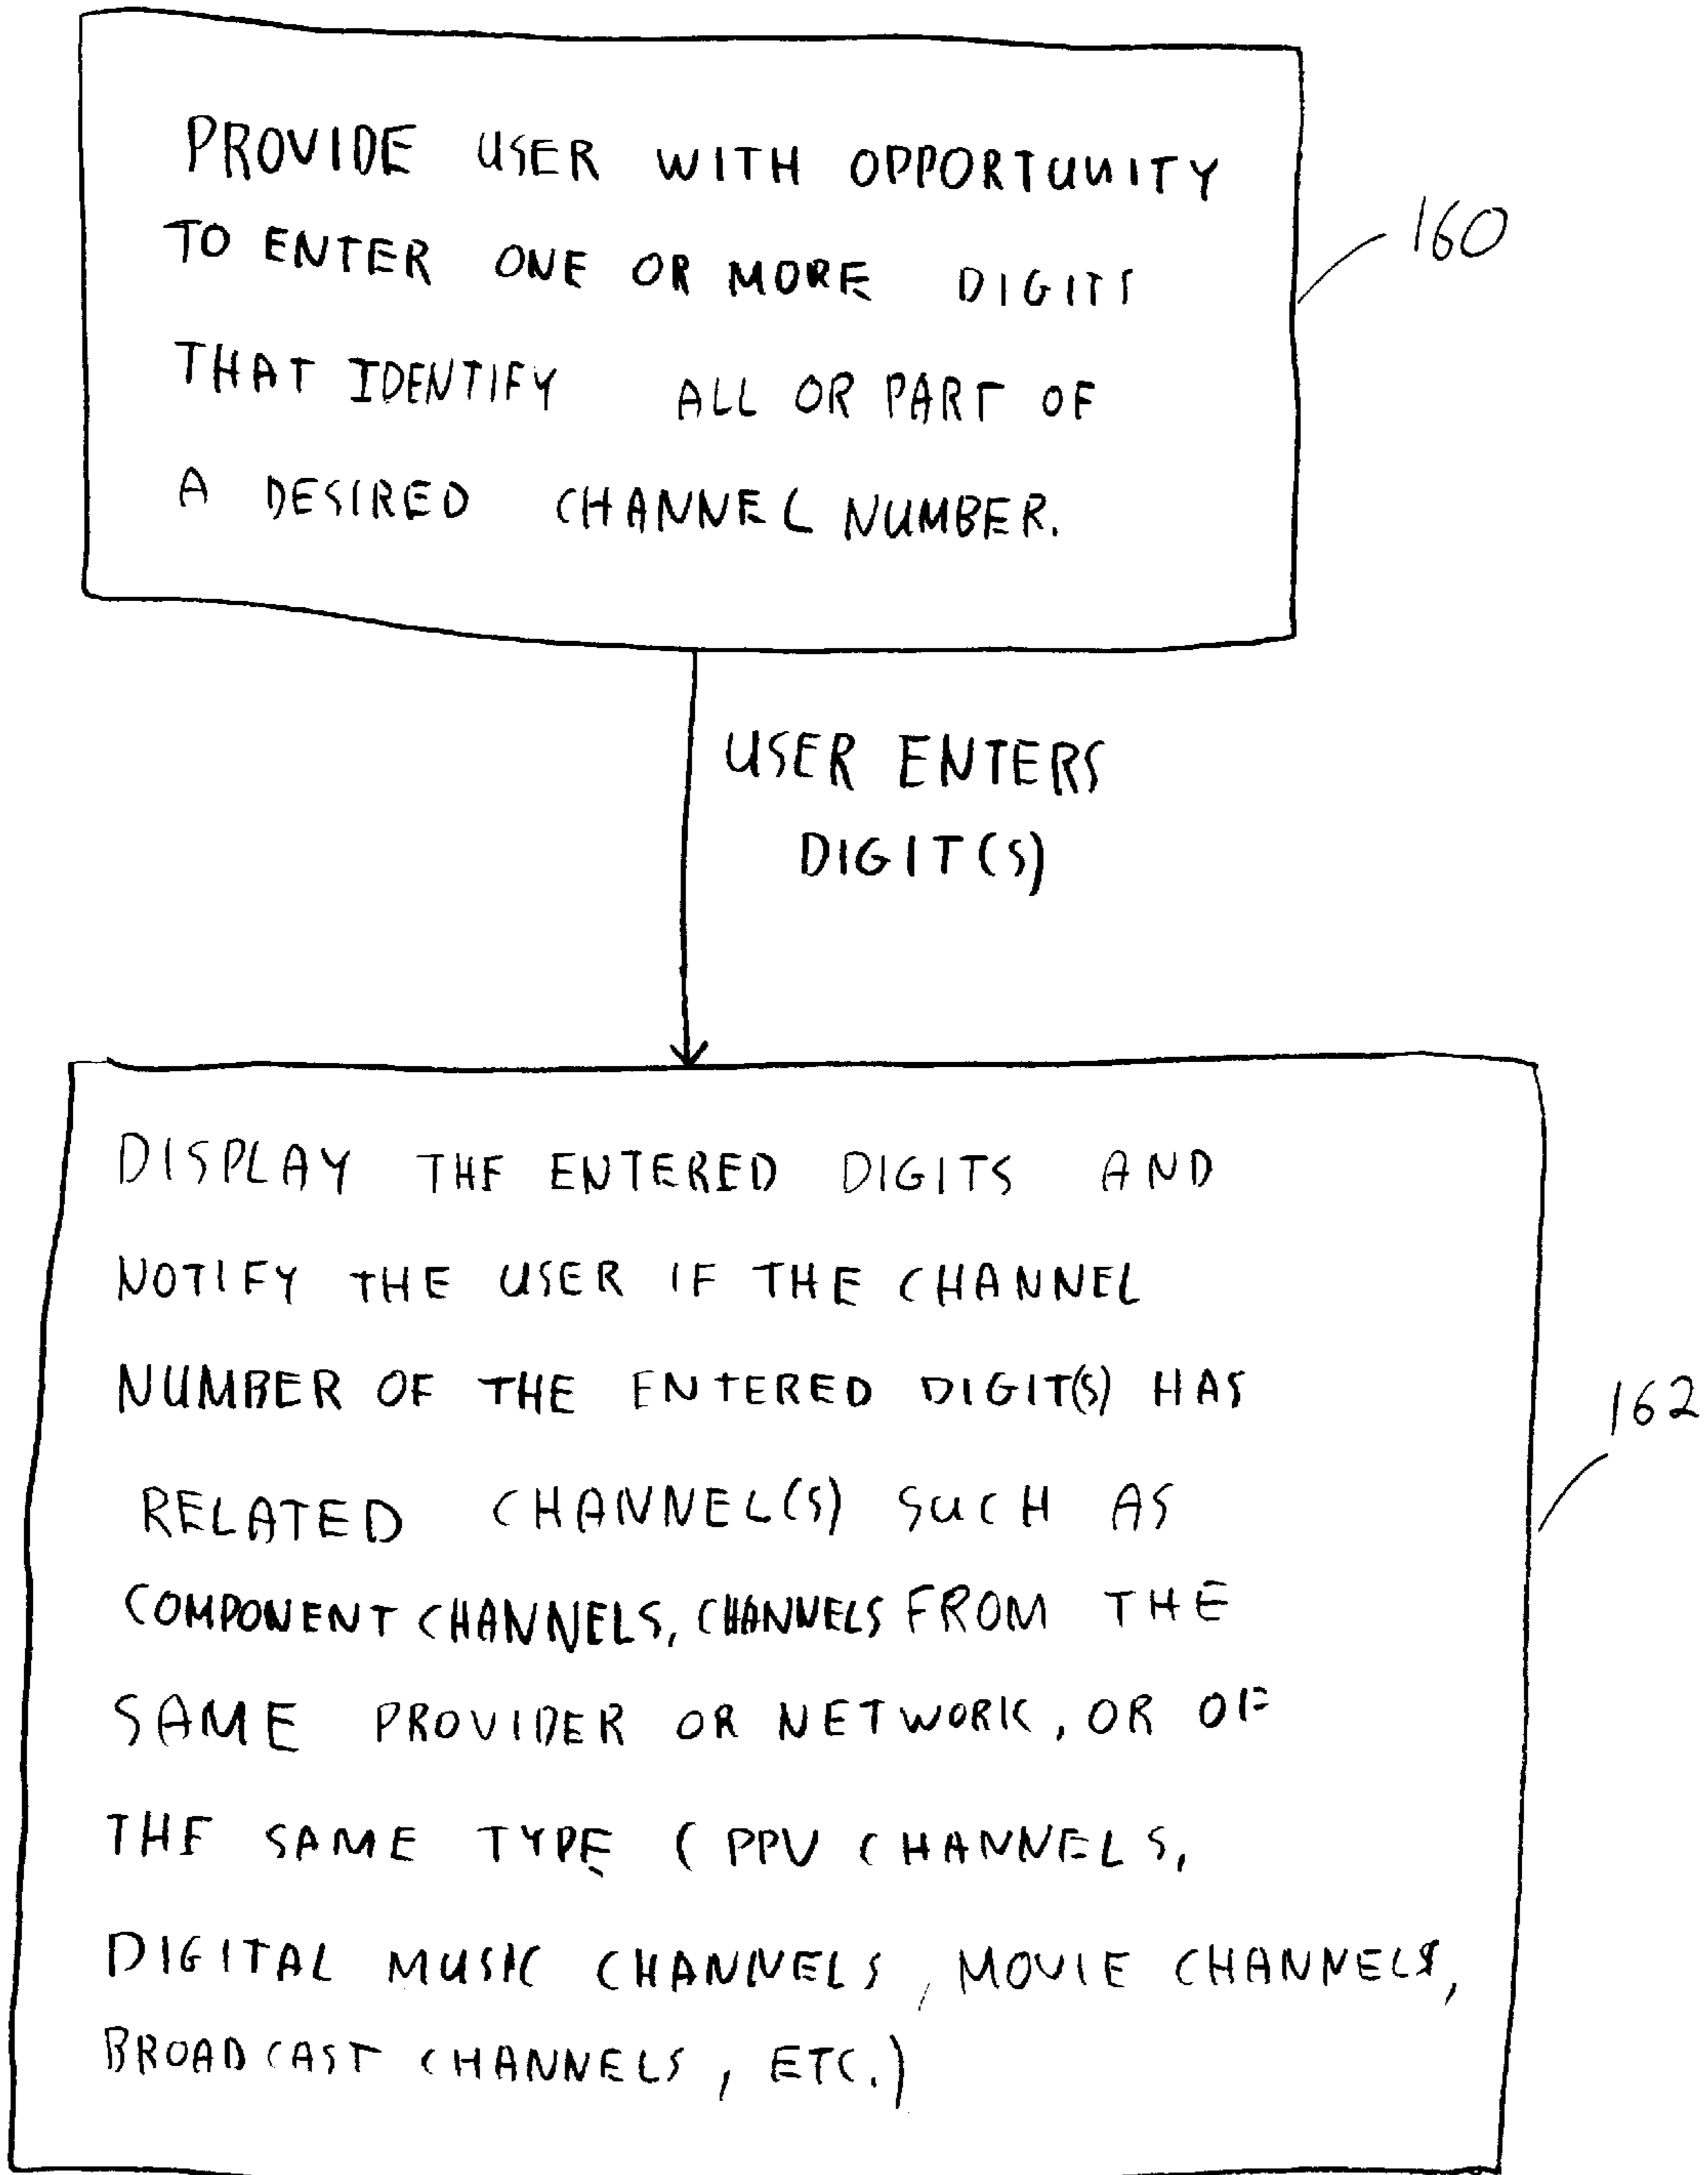 PROVIDE USER WITH OPPORTUNITY
TO ENTER ONE OR MORE DIGITS
THAT IDENTIFY ALL OR PART OF
A DESIRED CHANNEL NUMBER.
160
USER ENTERS
DIGIT(S)
DISPLAY THE ENTERED DIGITS AND
NOTIFY THE USER IF THE CHANNEL
NUMBER OF THE ENTERED DIGIT(S) HAS
162
RELATED CHANNEL(S) SUCH AS
COMPONENT CHANNELS, CHANNELS FROM THE
SAME PROVIDER OR NETWORK, OR OF
THE SAME TYPE (PPV CHANNELS,
DIGITAL MUSIC CHANNELS, MOVIE CHANNELS,
BROADCAST CHANNELS, ETC.)